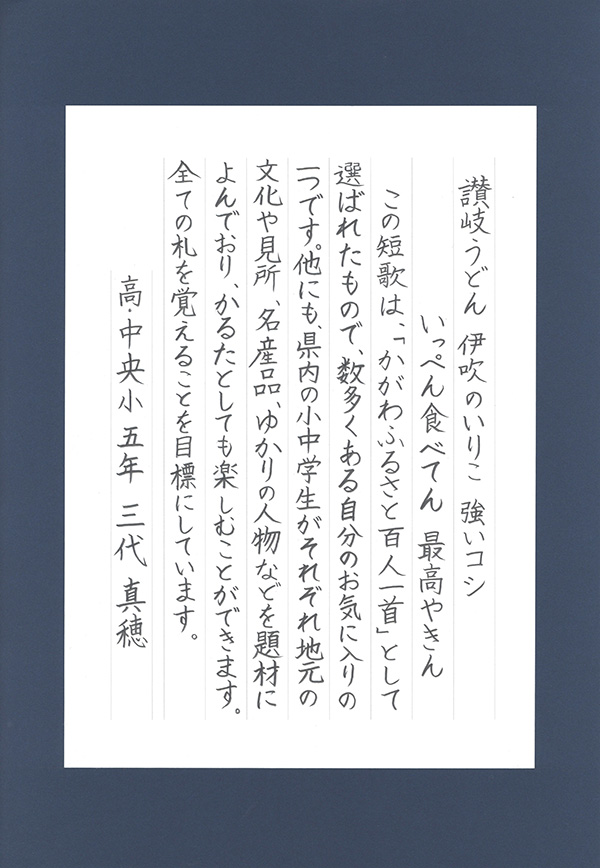 讃岐うどん 伊吹のいりこ 強いコシ
いっぺん食べてん 最高やきん
この短歌は、「かがわふるさと百人一首」として
選ばれたもので、数多くある自分のお気に入りの
一つです。他にも、県内の小中学生がそれぞれ地元の
文化や見所、名産品、ゆかりの人物などを題材に
よんでおり、かるたとしても楽しむことができます。
全ての札を覚えることを目標にしています。
高・中央小 五年 三代 真穂